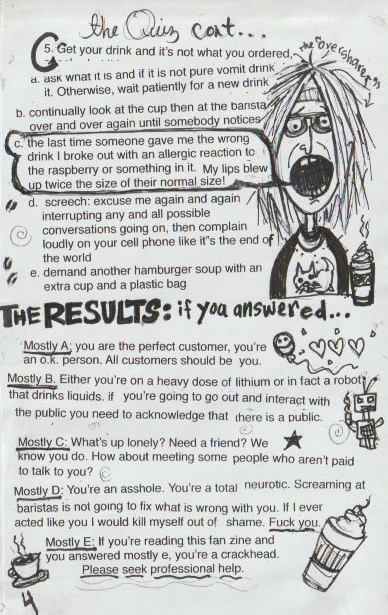 the Quiz cont...
5. Get your drink and it's not what you ordered,
the "oversharer"
a. ask what it is and if it is not pure vomit drink
it. Otherwise, wait patiently for a new drink
b. continually look at the cup then at the barista
over and over again until somebody notices
c. the last time someone gave me the wrong
drink I broke out with an allergic reaction to
the raspberry or something in it. My lips blew
up twice the size of their normal size!
d. screech: excuse me again and again
interrupting any and all possible
conversations going on, then complain
loudly on your cell phone like it"s the end of
the world
e. demand another hamburger soup with an
extra cup and a plastic bag
THE RESULTS: if you answered...
Mostly A; you are the perfect customer, you're
an o.k. person. All customers should be you.
Mostly B. Either you're on a heavy dose of lithium or in fact a robot
that drinks liquids. if you're going to go out and interact with
the public you need to acknowledge that there is a public.
Mostly C: What's up lonely? Need a friend? We
know you do. How about meeting some people who aren't paid
to talk to you?
Mostly D: You're an asshole. You're a total neurotic. Screaming at
baristas is not going to fix what is wrong with you. If I ever
acted like you I would kill myself out of shame. Fuck you.
Mostly E: If you're reading this fan zine and
you answered mostly e, you're a crackhead.
Please seek professional help.
4